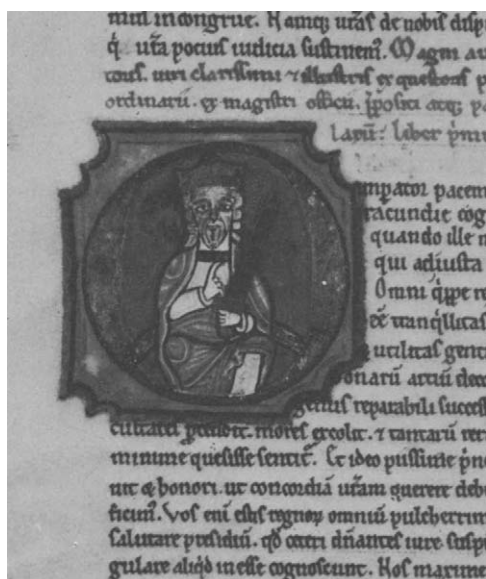 nius incongrue. Namq; uras de nobis disp
q̇ ura pocius iudicia sustinem̃. Magni au
uiri clarissimi ⁊ illustris ex questoris p
ordinarii. ex magistri officii. p̃positi atq; pa
liber prim
mpator pacem
racundie cog
quando ille m
qui adiusta
Omni q̇ppe re
eē tranq̇llitas
utilitas genti
onarū artiū deco
genus reparabili success
cultates p̄tendit. mores excolit. ⁊ tantarū rer
minime quesisse sentit̄. Et ideo piissime p̄nc
nit & honori. ut concordiā ur̄am querere debe
ficim̄. Vos eni estis regnoꝝ omniū pulcherrim
salutare presidiū. qd̄ ceteri dn̄antes iure suspi
gulare aliq̇d inesse cognoscunt. Nos maxime